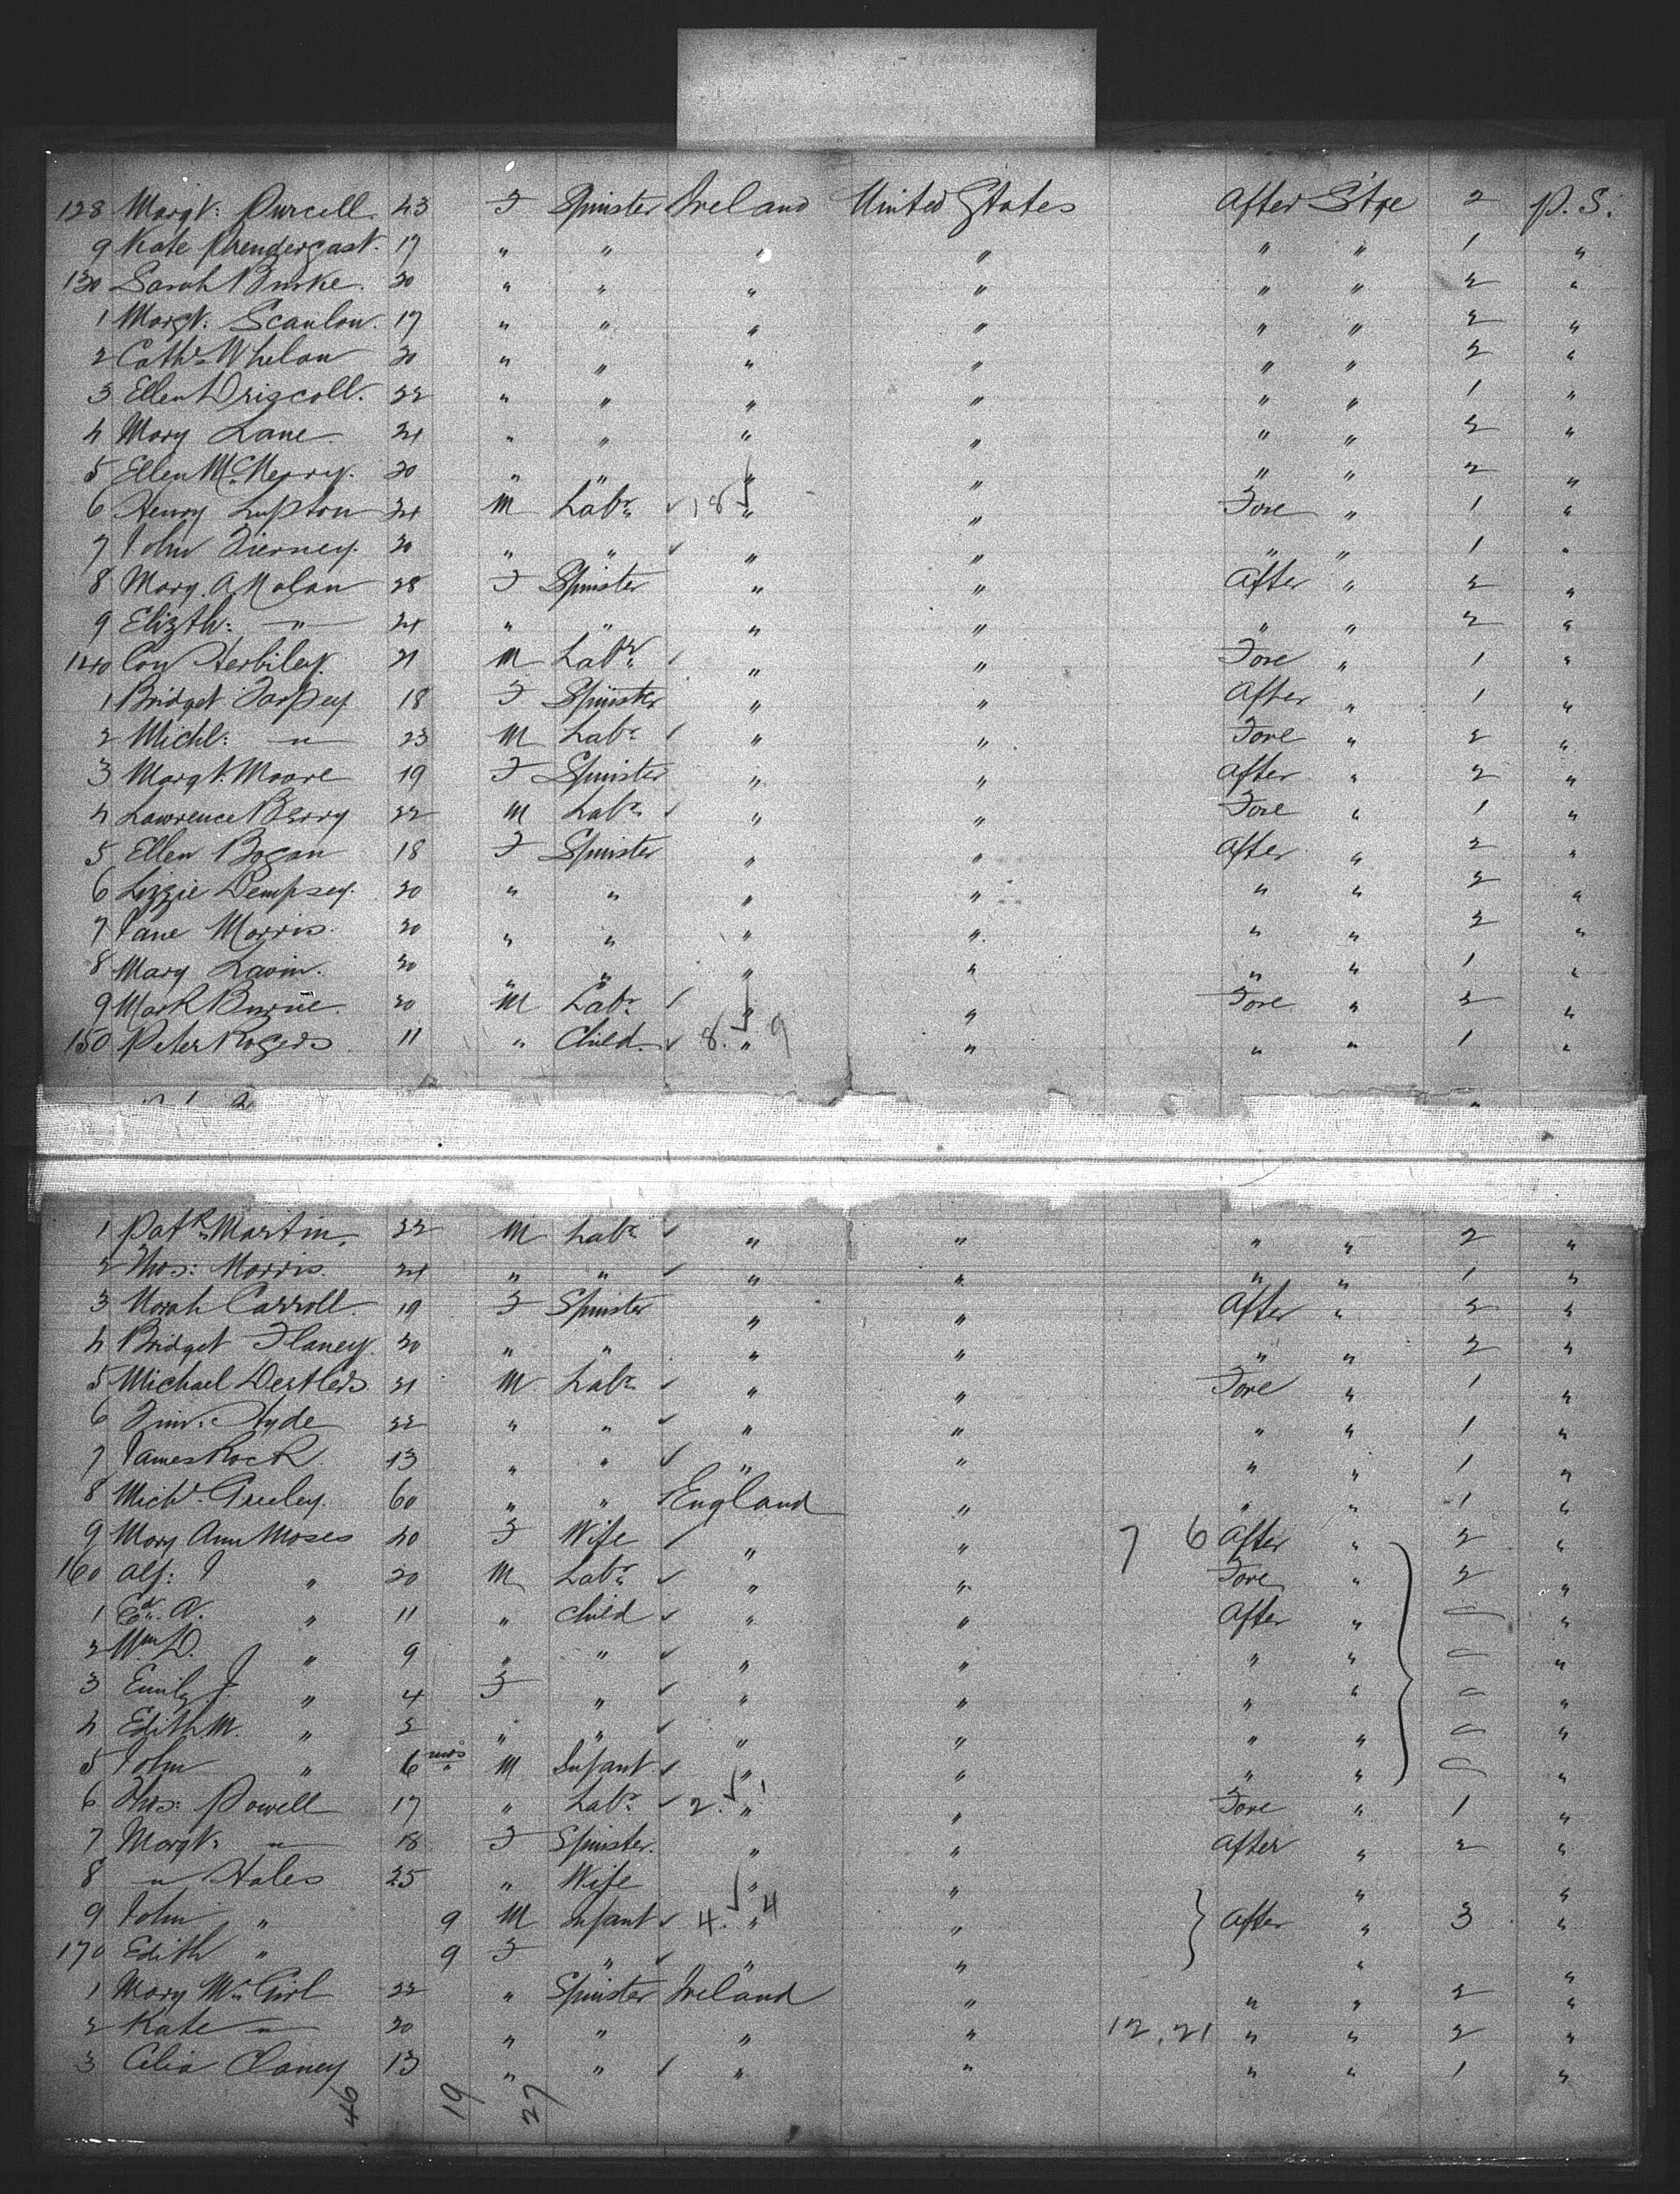 128 Margt: Purcell. 43 F Spinster Ireland United States After Stge 2 P.S.
9 Kate Prendergast. 17 " " " " " " 1 "
130 Sarah Burke. 20 " " " " " " 2 "
1 Margt: Scanlon. 17 " " " " " " 2 "
2 Cath: Whelan 20 " " " " " " 2 "
3 Ellen Driscoll. 22 " " " " " " 1 "
4 Mary Lane. 24 " " " " " " 2 "
5 Ellen 20 " " " " " " 2 "
6 Henry Lupton 24 M Labr ✓ 18 ✓ " " Fore " 1 "
7 John Tierney. 20 " " ✓ " " " " 1 "
8 Mary. A Nolan 28 F Spinster " " After " 2 "
9 Elizth: " 24 " " " " " " 2 "
140 Con 21 M Labr ✓ " " Fore " 1 "
1 Bridget Tarpey 18 F Spinster " " After " 1 "
2 Michl: " 23 M Labr ✓ " " Fore " 2 "
3 Margt. Moore 19 F Spinster " " After " 2 "
4 Lawrence Berry 22 M Labr ✓ " " Fore " 1 "
5 Ellen Bogan 18 F Spinster " " After " 2 "
6 Lizzie Dempsey. 20 " " " " " " 2 "
7 Jane Morris. 20 " " " " " " 2 "
8 Mary Lavin. 20 " " " " " " 1 "
9 Mark Burne. 20 M Labr ✓ " " Fore " 2 "
150 Peter Rogers 11 " Child. ✓ 8. ✓ " 9 " " " 1 "
1 Patk Martin. 22 M Labr ✓ " " " " 2 "
2 Thos: Morris. 24 " " ✓ " " " " 1 "
3 Norah Carroll. 19 F Spinster " " After " 2 "
4 Bridget Flaney. 20 " " " " " " 2 "
5 Michael 21 M Labr ✓ " " Fore " 1 "
6 Tim: Hyde 22 " " ✓ " " " " 1 "
7 James Rock. 13 " " ✓ " " " " 1 "
8 Michl. Greeley. 60 " " ✓ England " " " 1 "
9 Mary Ann Moses 40 F Wife ✓ " " 7 6 After " 2 "
160 Alf: J " 20 M Labr ✓ " " Fore " 2 "
1 Ed. A. " 11 " Child ✓ " " After " — "
2 Wm D. " 9 " " ✓ " " " " — "
3 Emily J. " 4 F " ✓ " " " " — "
4 Edith M. " 2 " " ✓ " " " " — "
5 John " 6 mos M Infant ✓ " " " " — "
6 Thos: Powell 17 " Labr ✓ 2. ✓ " 1 " Fore " 1 "
7 Margt: " 18 F Spinster. " " After " 2 "
8 " Hales 25 " Wife " " " "
9 John " 9 M Infant ✓ 4. ✓ " 4 " After " 3 "
170 Edith " 9 F " ✓ " " " "
1 Mary McGirl 22 " Spinster Ireland " " " 2 "
2 Kate " 20 " " " " 12, 21 " " 2 "
3 Celia Claney 13 " " ✓ " " " " 1 "
46 19 27